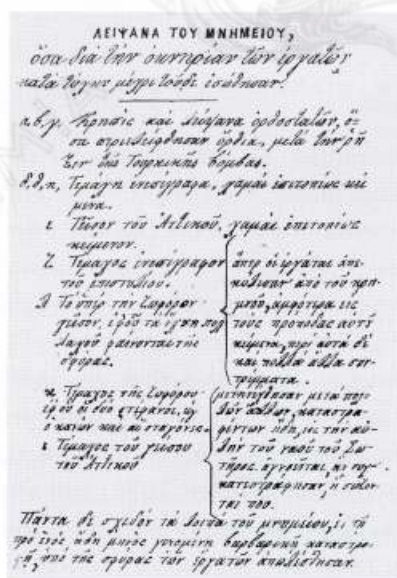 ΛΕΙΨΑΝΑ ΤΟΥ ΜΝΗΜΕΙΟΥ,
ὅσα διὰ τὴν ὀκνηρίαν τῶν ἐργατῶν
κατὰ τύχην μέχρι τοῦδε ἐσώθησαν.
α, β, γ, Κρηπὶς καὶ λείψανα ὀρθοστατῶν, ὅ-
σα ὄρθια, μετὰ τὴν ῥῆ
ξιν τῆς Τουρκικῆς βόμβας.
δ, θ, η, Τεμάχη ἐνεπίγραφα, χαμαὶ ἐπιτοπίως κεί
μενα.
ε Γεῖσον τοῦ Ἀττικοῦ, χαμαὶ ἐπιτοπίως
κείμενον.
ζ Τέμαχος ἐνεπίγραφον
τοῦ ἐπιστυλίου.
λ Τὸ ὑπὲρ τὴν ζωφόρον
γεῖσον, ἐφ' οὗ τὰ ἴχνη πολ
λαχοῦ φαίνονται τῆς
σφύρας.
ἅπερ οἱ ἐργάται ἀπε
κύλισαν ἀπὸ τοῦ κρη
μνοῦ, ἀμφότερα εἰς
τοὺς πρόποδας αὐτοῦ
κείμενα, περὶ αὐτὰ δὲ
καὶ πολλὰ ἄλλα συν
τρίμματα.
κ Τέμαχος τῆς ζωφόρου
ἐφ' οὗ οἱ δύο στέφανοι, ὡς
ὁ κανὼν καὶ αἱ σταγόνες.
ι Τέμαχος τοῦ γείσου
τοῦ Ἀττικοῦ
μετηνέχθησαν μετὰ πολ
λῶν ἄλλων, καταστρα
φέντων ἤδη, εἰς τὴν αὐ
λὴν τοῦ ναοῦ τοῦ Σω
τῆρος. ἀγνοεῖται, ἂν
κατεστράφησαν, ἢ σώζον
ται που.
Πάντα δὲ σχεδὸν τὰ λοιπὰ τοῦ μνημείου, ἐν τῇ
πρὸ ἑνὸς ἤδη μηνὸς γενομένῃ βαρβαρικῇ καταστρο
φῇ, ὑπὸ τῆς σφύρας τῶν ἐργατῶν ἀπωλέσθησαν.